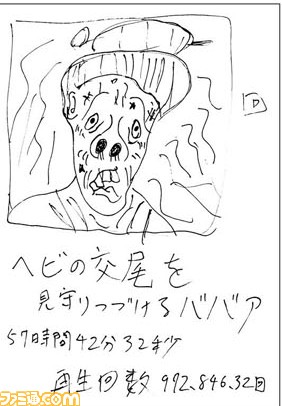 回
ヘビの交尾を
見守りつづけるババア
57時間42分32秒
再生回数 992,846,32回
ファミ通.com